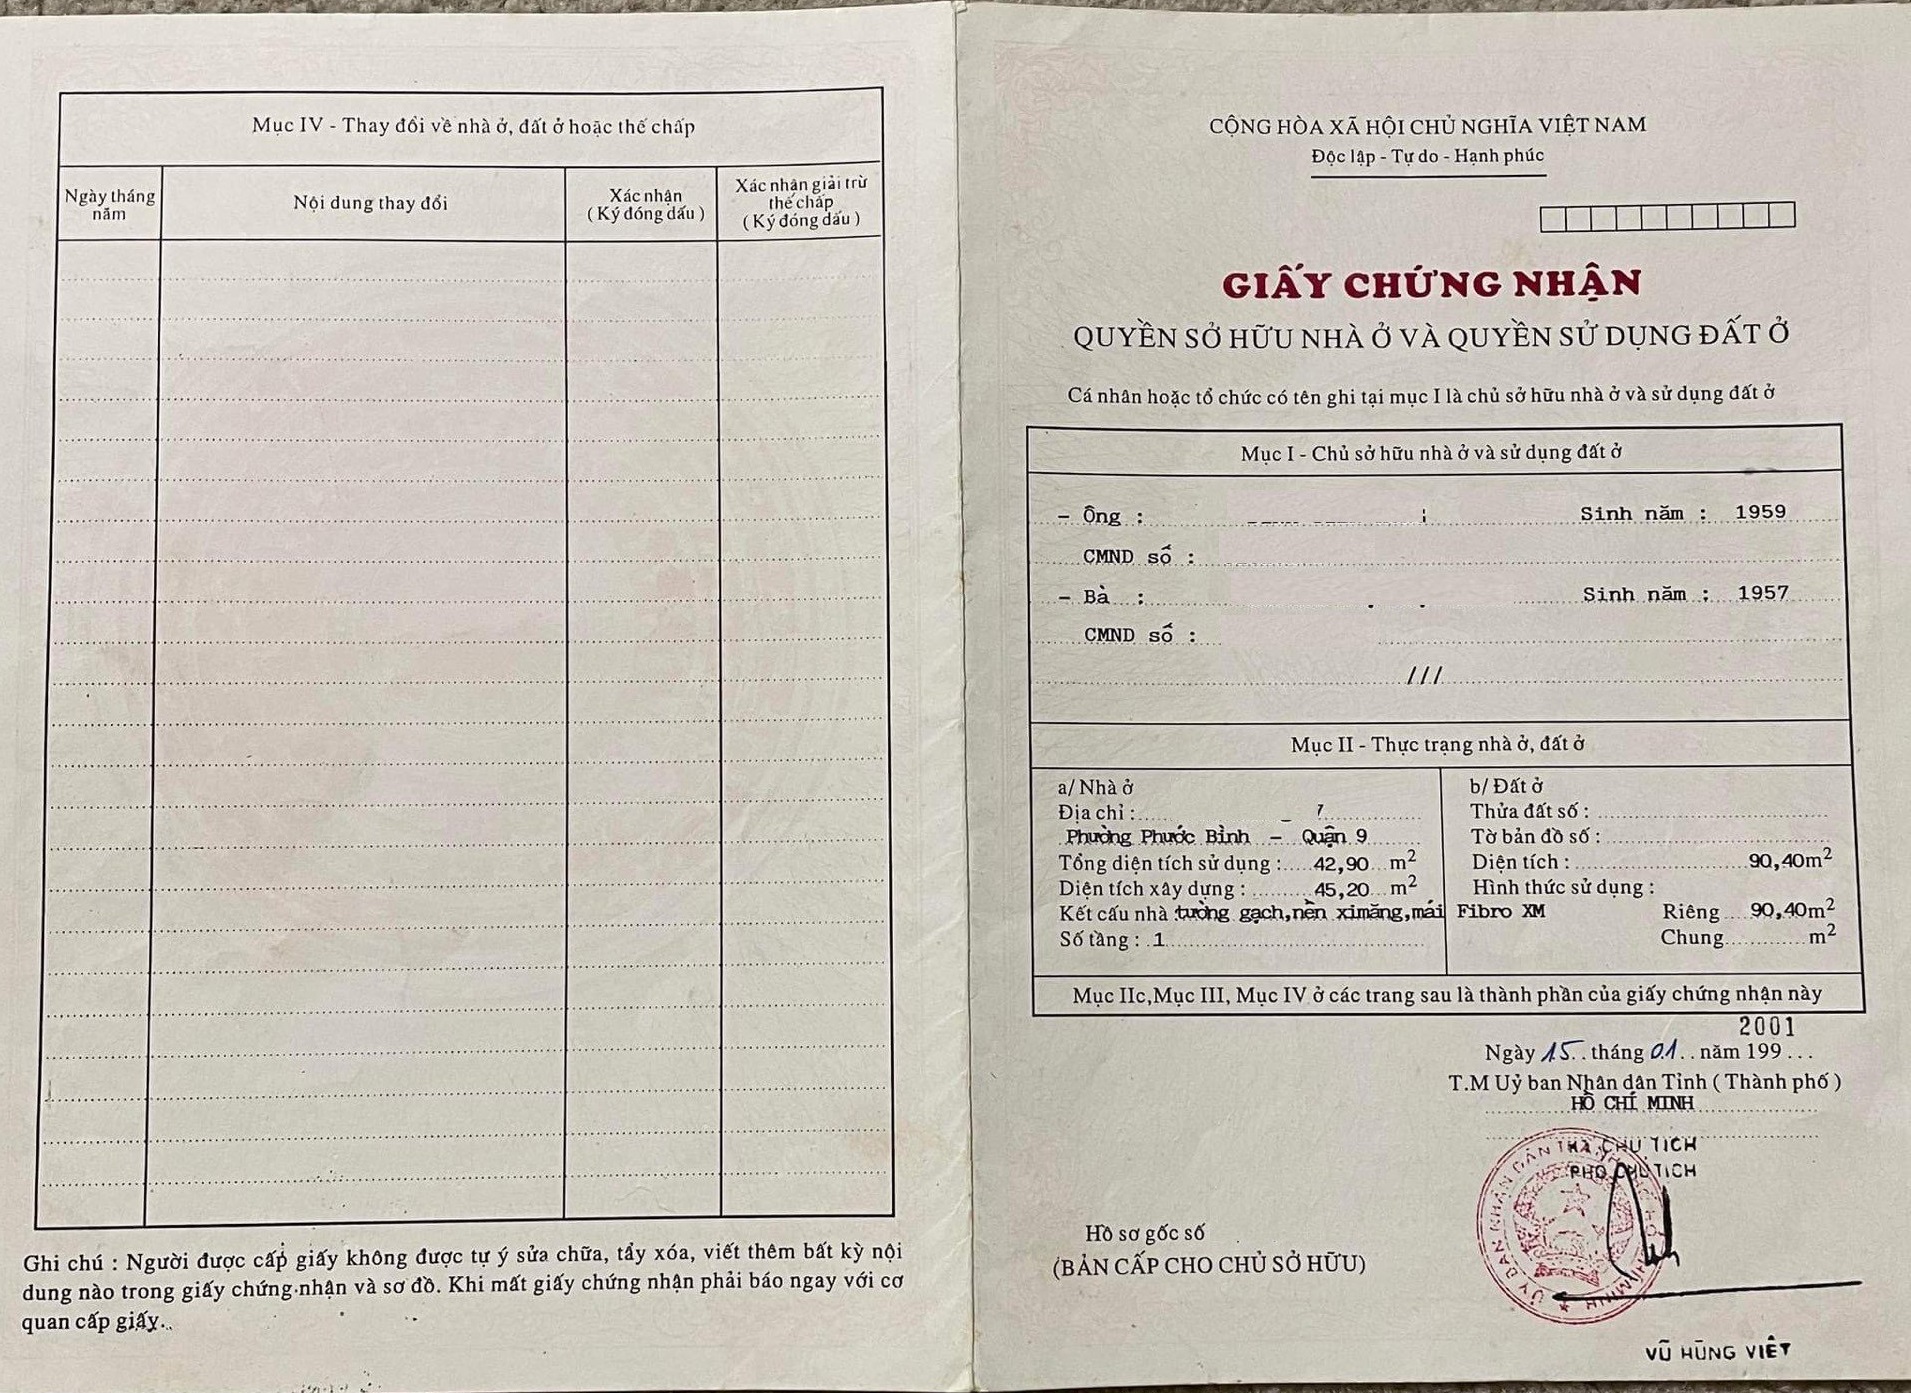 Mục IV - Thay đổi về nhà ở, đất ở hoặc thế chấp
Ngày tháng năm
Nội dung thay đổi
Xác nhận
( Ký đóng dấu )
Xác nhận giải trừ
thế chấp
( Ký đóng dấu )
Ghi chú : Người được cấp giấy không được tự ý sửa chữa, tẩy xóa, viết thêm bất kỳ nội
dung nào trong giấy chứng nhận và sơ đồ. Khi mất giấy chứng nhận phải báo ngay với cơ
quan cấp giấy.
CỘNG HÒA XÃ HỘI CHỦ NGHĨA VIỆT NAM
Độc lập - Tự do - Hạnh phúc
GIẤY CHỨNG NHẬN
QUYỀN SỞ HỮU NHÀ Ở VÀ QUYỀN SỬ DỤNG ĐẤT Ở
Cá nhân hoặc tổ chức có tên ghi tại mục I là chủ sở hữu nhà ở và sử dụng đất ở
Mục I - Chủ sở hữu nhà ở và sử dụng đất ở
- Ông : Sinh năm : 1959
CMND số :
- Bà : Sinh năm : 1957
CMND số :
///
Mục II - Thực trạng nhà ở, đất ở
a/ Nhà ở
Địa chỉ :
Phường Phước Bình - Quận 9
Tổng diện tích sử dụng : 42,90 m²
Diện tích xây dựng : 45,20 m²
Kết cấu nhà : tường gạch,nền ximăng,mái Fibro XM
Số tầng : 1
b/ Đất ở
Thửa đất số :
Tờ bản đồ số :
Diện tích : 90,40m²
Hình thức sử dụng :
Riêng 90,40m²
Chung m²
Mục IIc,Mục III, Mục IV ở các trang sau là thành phần của giấy chứng nhận này
2001
Ngày 15 tháng 01 năm 199...
T.M Uỷ ban Nhân dân Tỉnh ( Thành phố )
HỒ CHÍ MINH
CHỦ TỊCH
PHÓ CHỦ TỊCH
ỦY BAN NHÂN DÂN THÀNH PHỐ HỒ CHÍ MINH
Hồ sơ gốc số
(BẢN CẤP CHO CHỦ SỞ HỮU)
VŨ HÙNG VIỆT